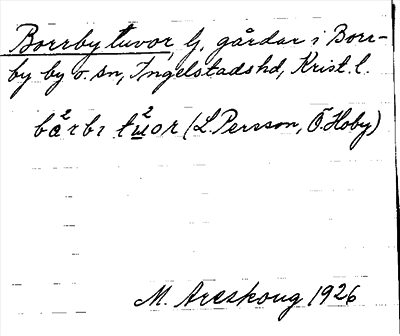 Borrby tuvor, lj, gårdar i Borr-
by by o. sn, Ingelstads hd, Krist. l.
(L. Persson, Ö. Hoby)
M. Areskoug 1926